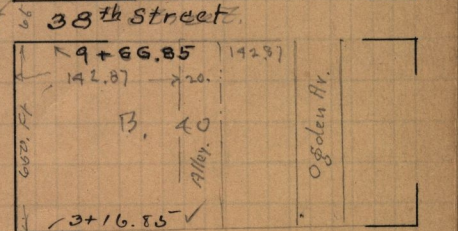 66
38th Street.
9+66.85
142.87
142.87
20.
660. Ft
B. 40
Alley.
Ogden Av.
3+16.85 ✓